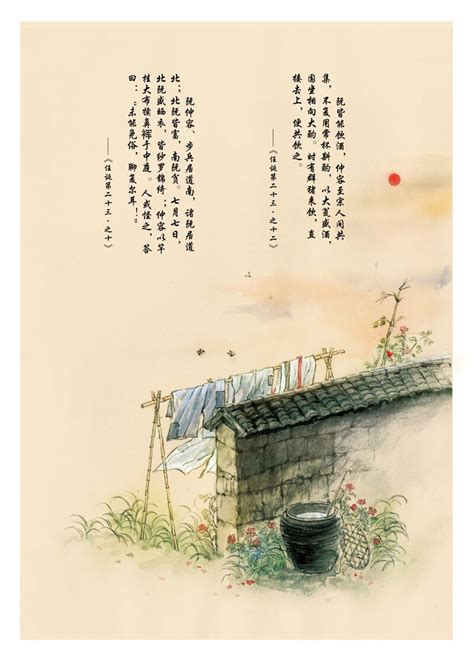 阮皆能饮酒,仲容至宗人间共
集,不复用常杯斟酌,以大瓮盛酒,
围坐相向大酌。时有群猪来饮,直
接去上,便共饮之。
——《任诞第二十三,之十二》
阮仲容、步兵居道南,诸阮居道
北;北阮皆富,南阮贫。七月七日,
北阮盛晒衣,皆纱罗锦绮;仲容以竿
挂大布犊鼻裈于中庭。人或怪之,答
曰:“未能免俗,聊复尔耳!”
——《任诞第二十三,之十》